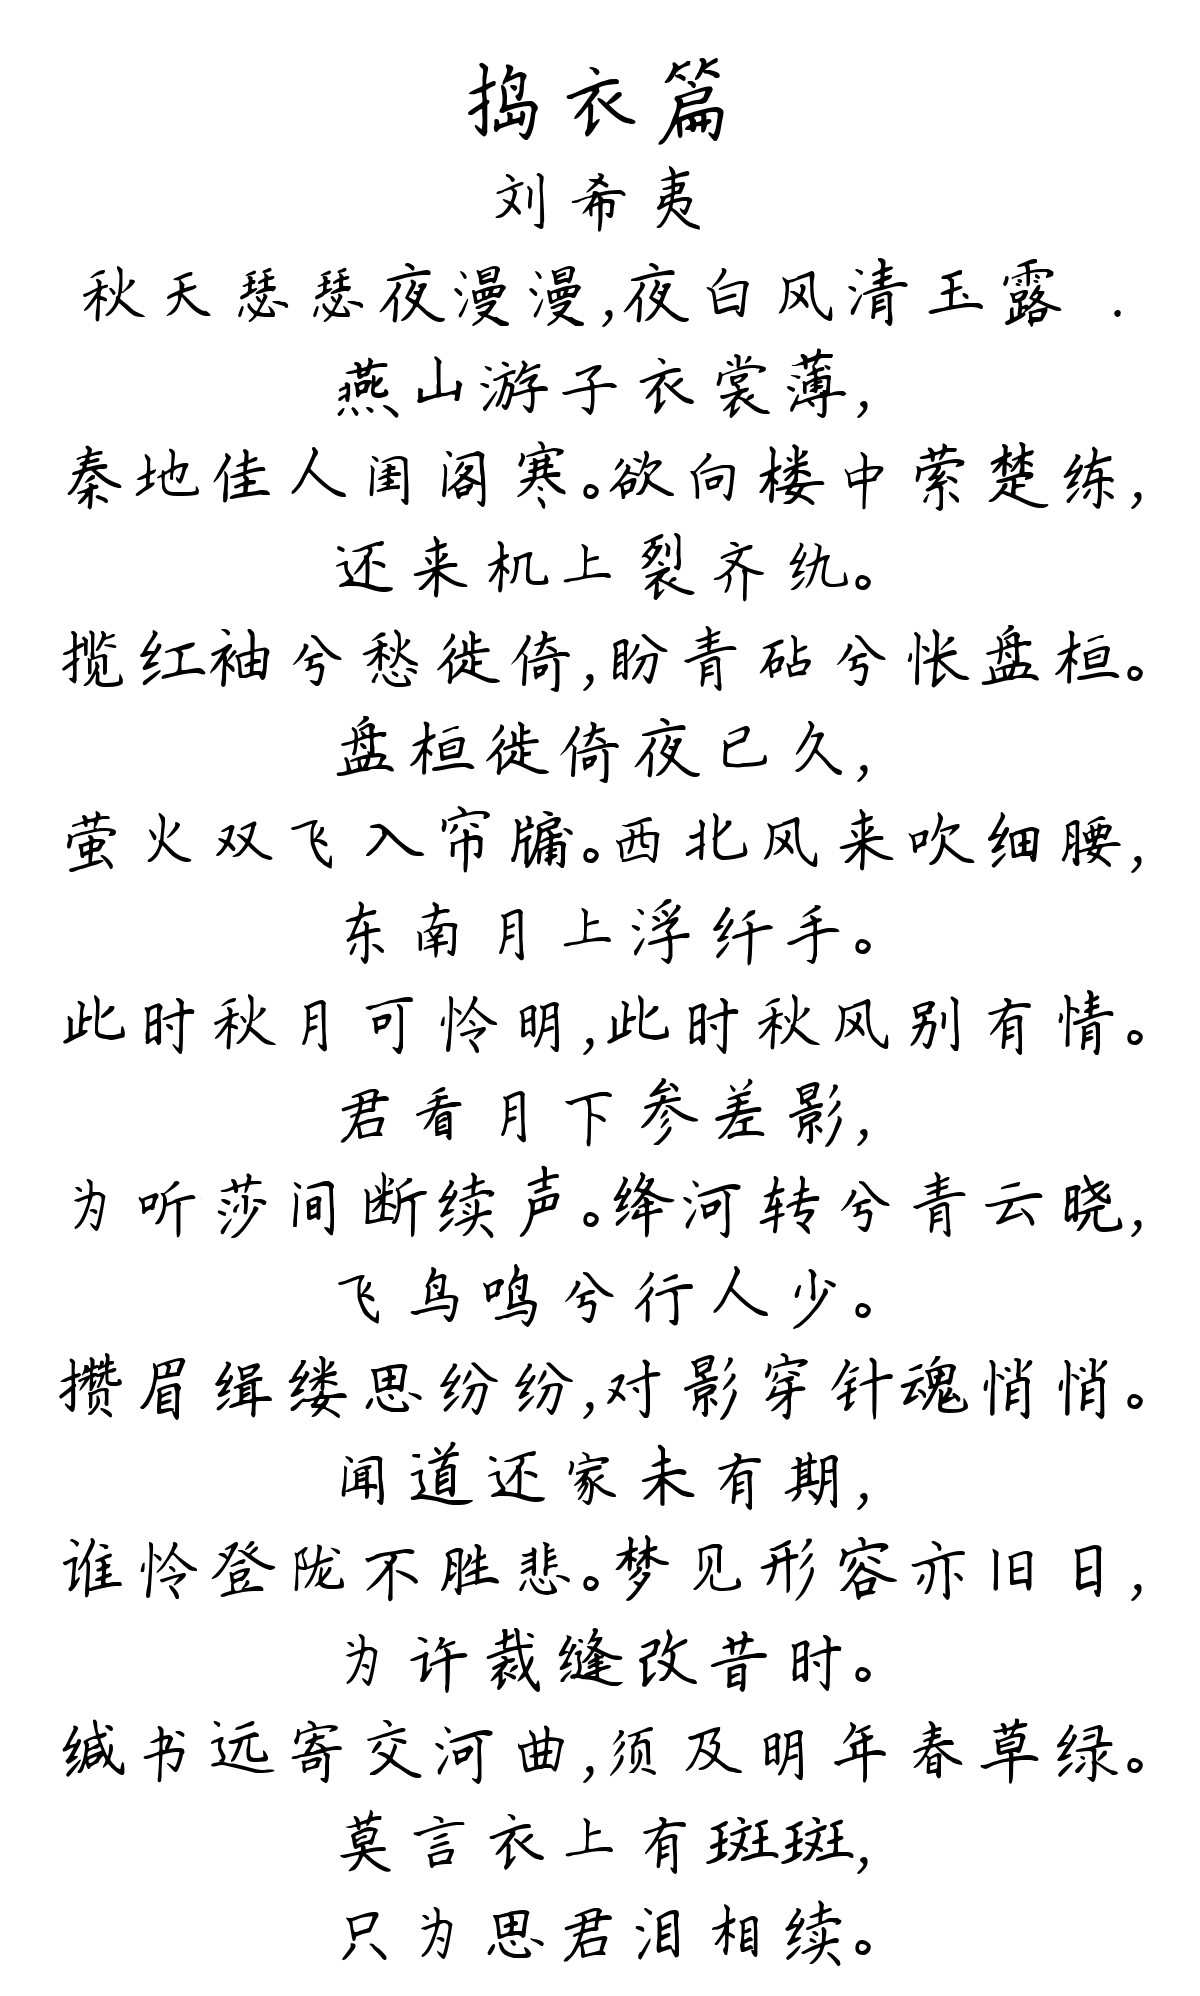 捣衣篇
刘希夷
秋天瑟瑟夜漫漫,夜白风清玉露 .
燕山游子衣裳薄,
秦地佳人闺阁寒。欲向楼中萦楚练,
还来机上裂齐纨。
揽红袖兮愁徙倚,盼青砧兮怅盘桓。
盘桓徙倚夜已久,
萤火双飞入帘牖。西北风来吹细腰,
东南月上浮纤手。
此时秋月可怜明,此时秋风别有情。
君看月下参差影,
为听莎间断续声。绛河转兮青云晓,
飞鸟鸣兮行人少。
攒眉缉缕思纷纷,对影穿针魂悄悄。
闻道还家未有期,
谁怜登陇不胜悲。梦见形容亦旧日,
为许裁缝改昔时。
缄书远寄交河曲,须及明年春草绿。
莫言衣上有斑斑,
只为思君泪相续。